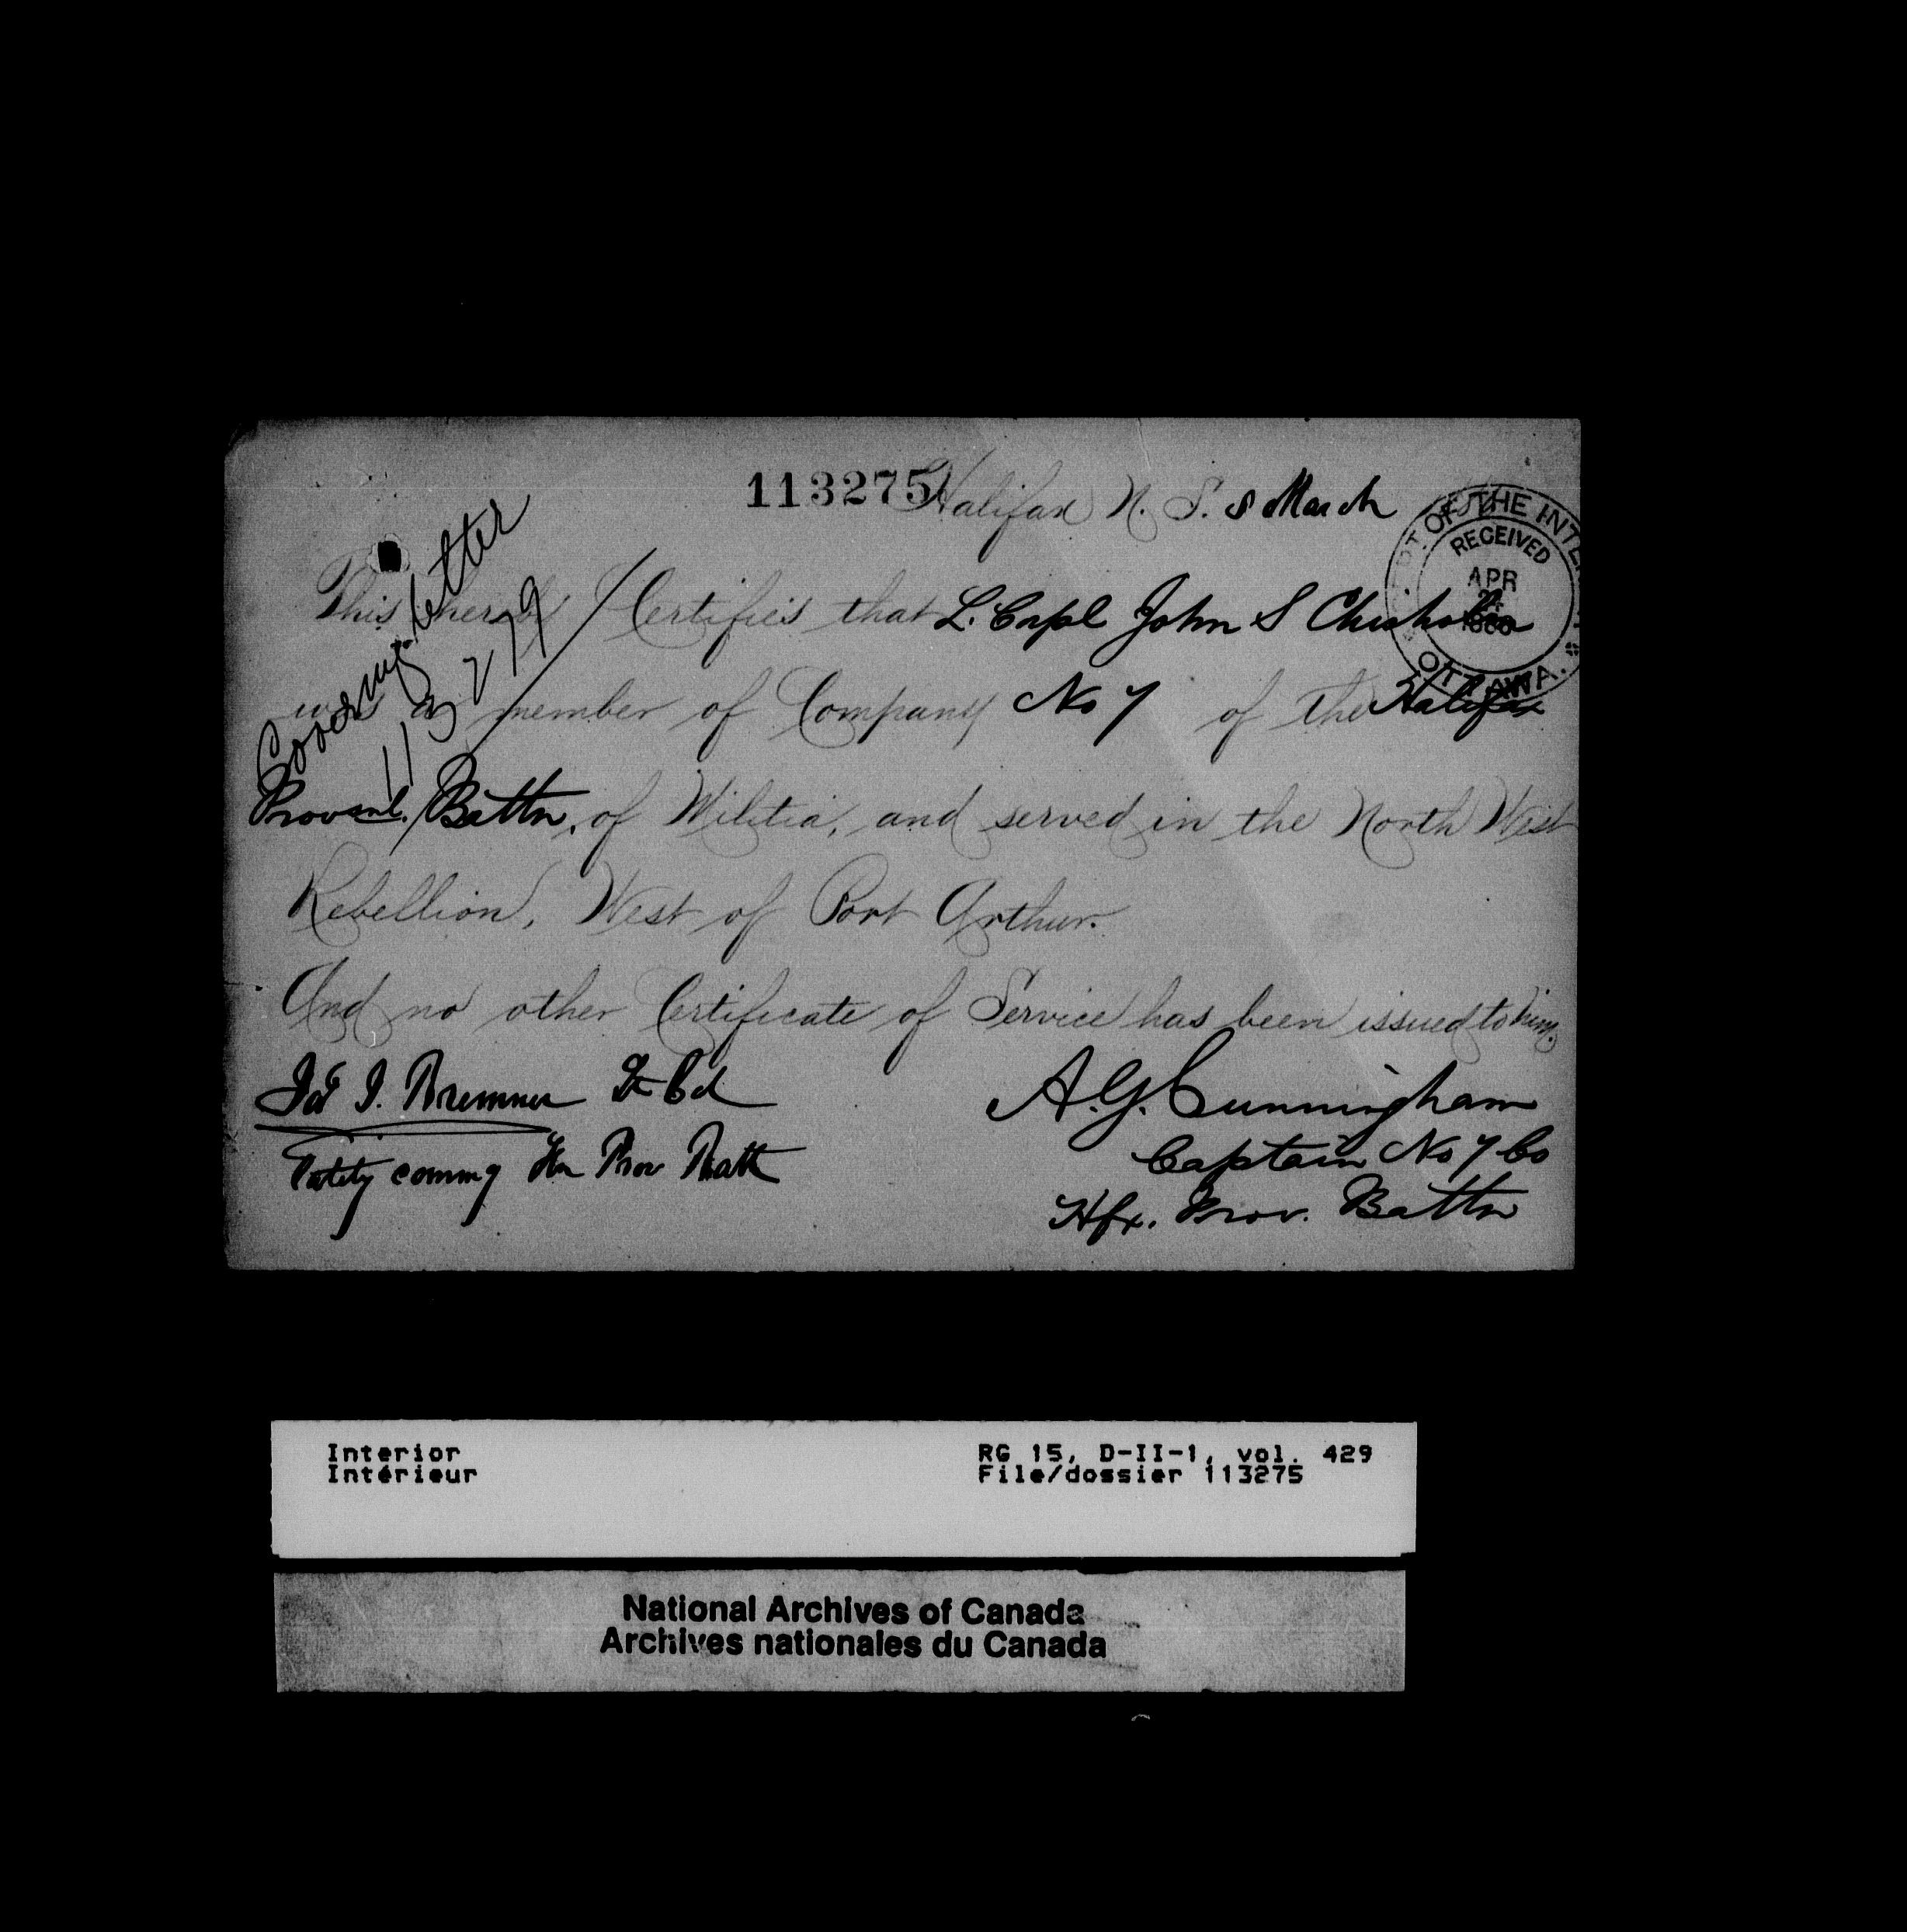 113275
Halifax N. S. 8 March
DPT OF THE INTERIOR
RECEIVED
APR
1886
OTTAWA.
Covering letter
113279
This hereby Certifies that L. Corpl John S Chisholm
was a member of Company No 7 of the Halifax
Provnl. Battn. of Militia, and served in the North West
Rebellion, West of Port Arthur.
And no other Certificate of Service has been issued to him.
Jas J. Bremner Lt Col
lately commg Hx Prov Batt
A. G. Cunningham
Captain No 7 Co
Hfx. Prov. Battn
Interior
Intérieur
RG 15, D-II-1, vol. 429
File/dossier 113275
National Archives of Canada
Archives nationales du Canada